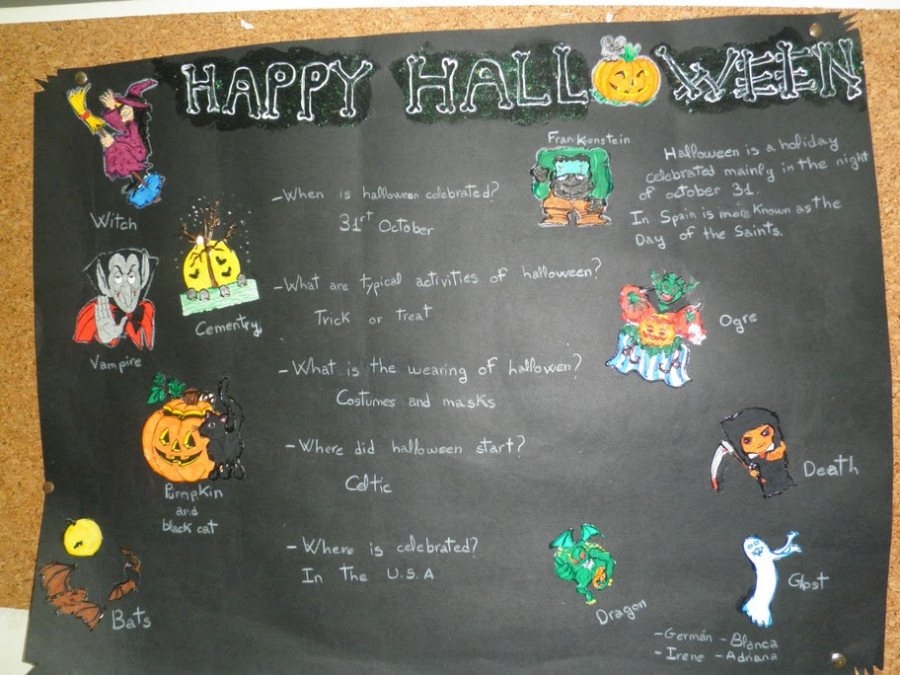 HAPPY HALLOWEEN
Witch
Vampire
Cementry
Pumpkin
and
black cat
Bats
-When is halloween celebrated?
31rt October
-What are typical activities of halloween?
Trick or treat
-What is the wearing of hallowen?
Costumes and masks
-Where did halloween start?
Celtic
-Where is celebrated?
In The U.S.A
Frankienstein
Halloween is a holiday
celebrated mainly in the night
of october 31.
In Spain is more known as the
Day of the Saints.
Ogre
Death
Dragon
Ghost
-Germán -Blanca
-Irene -Adriana